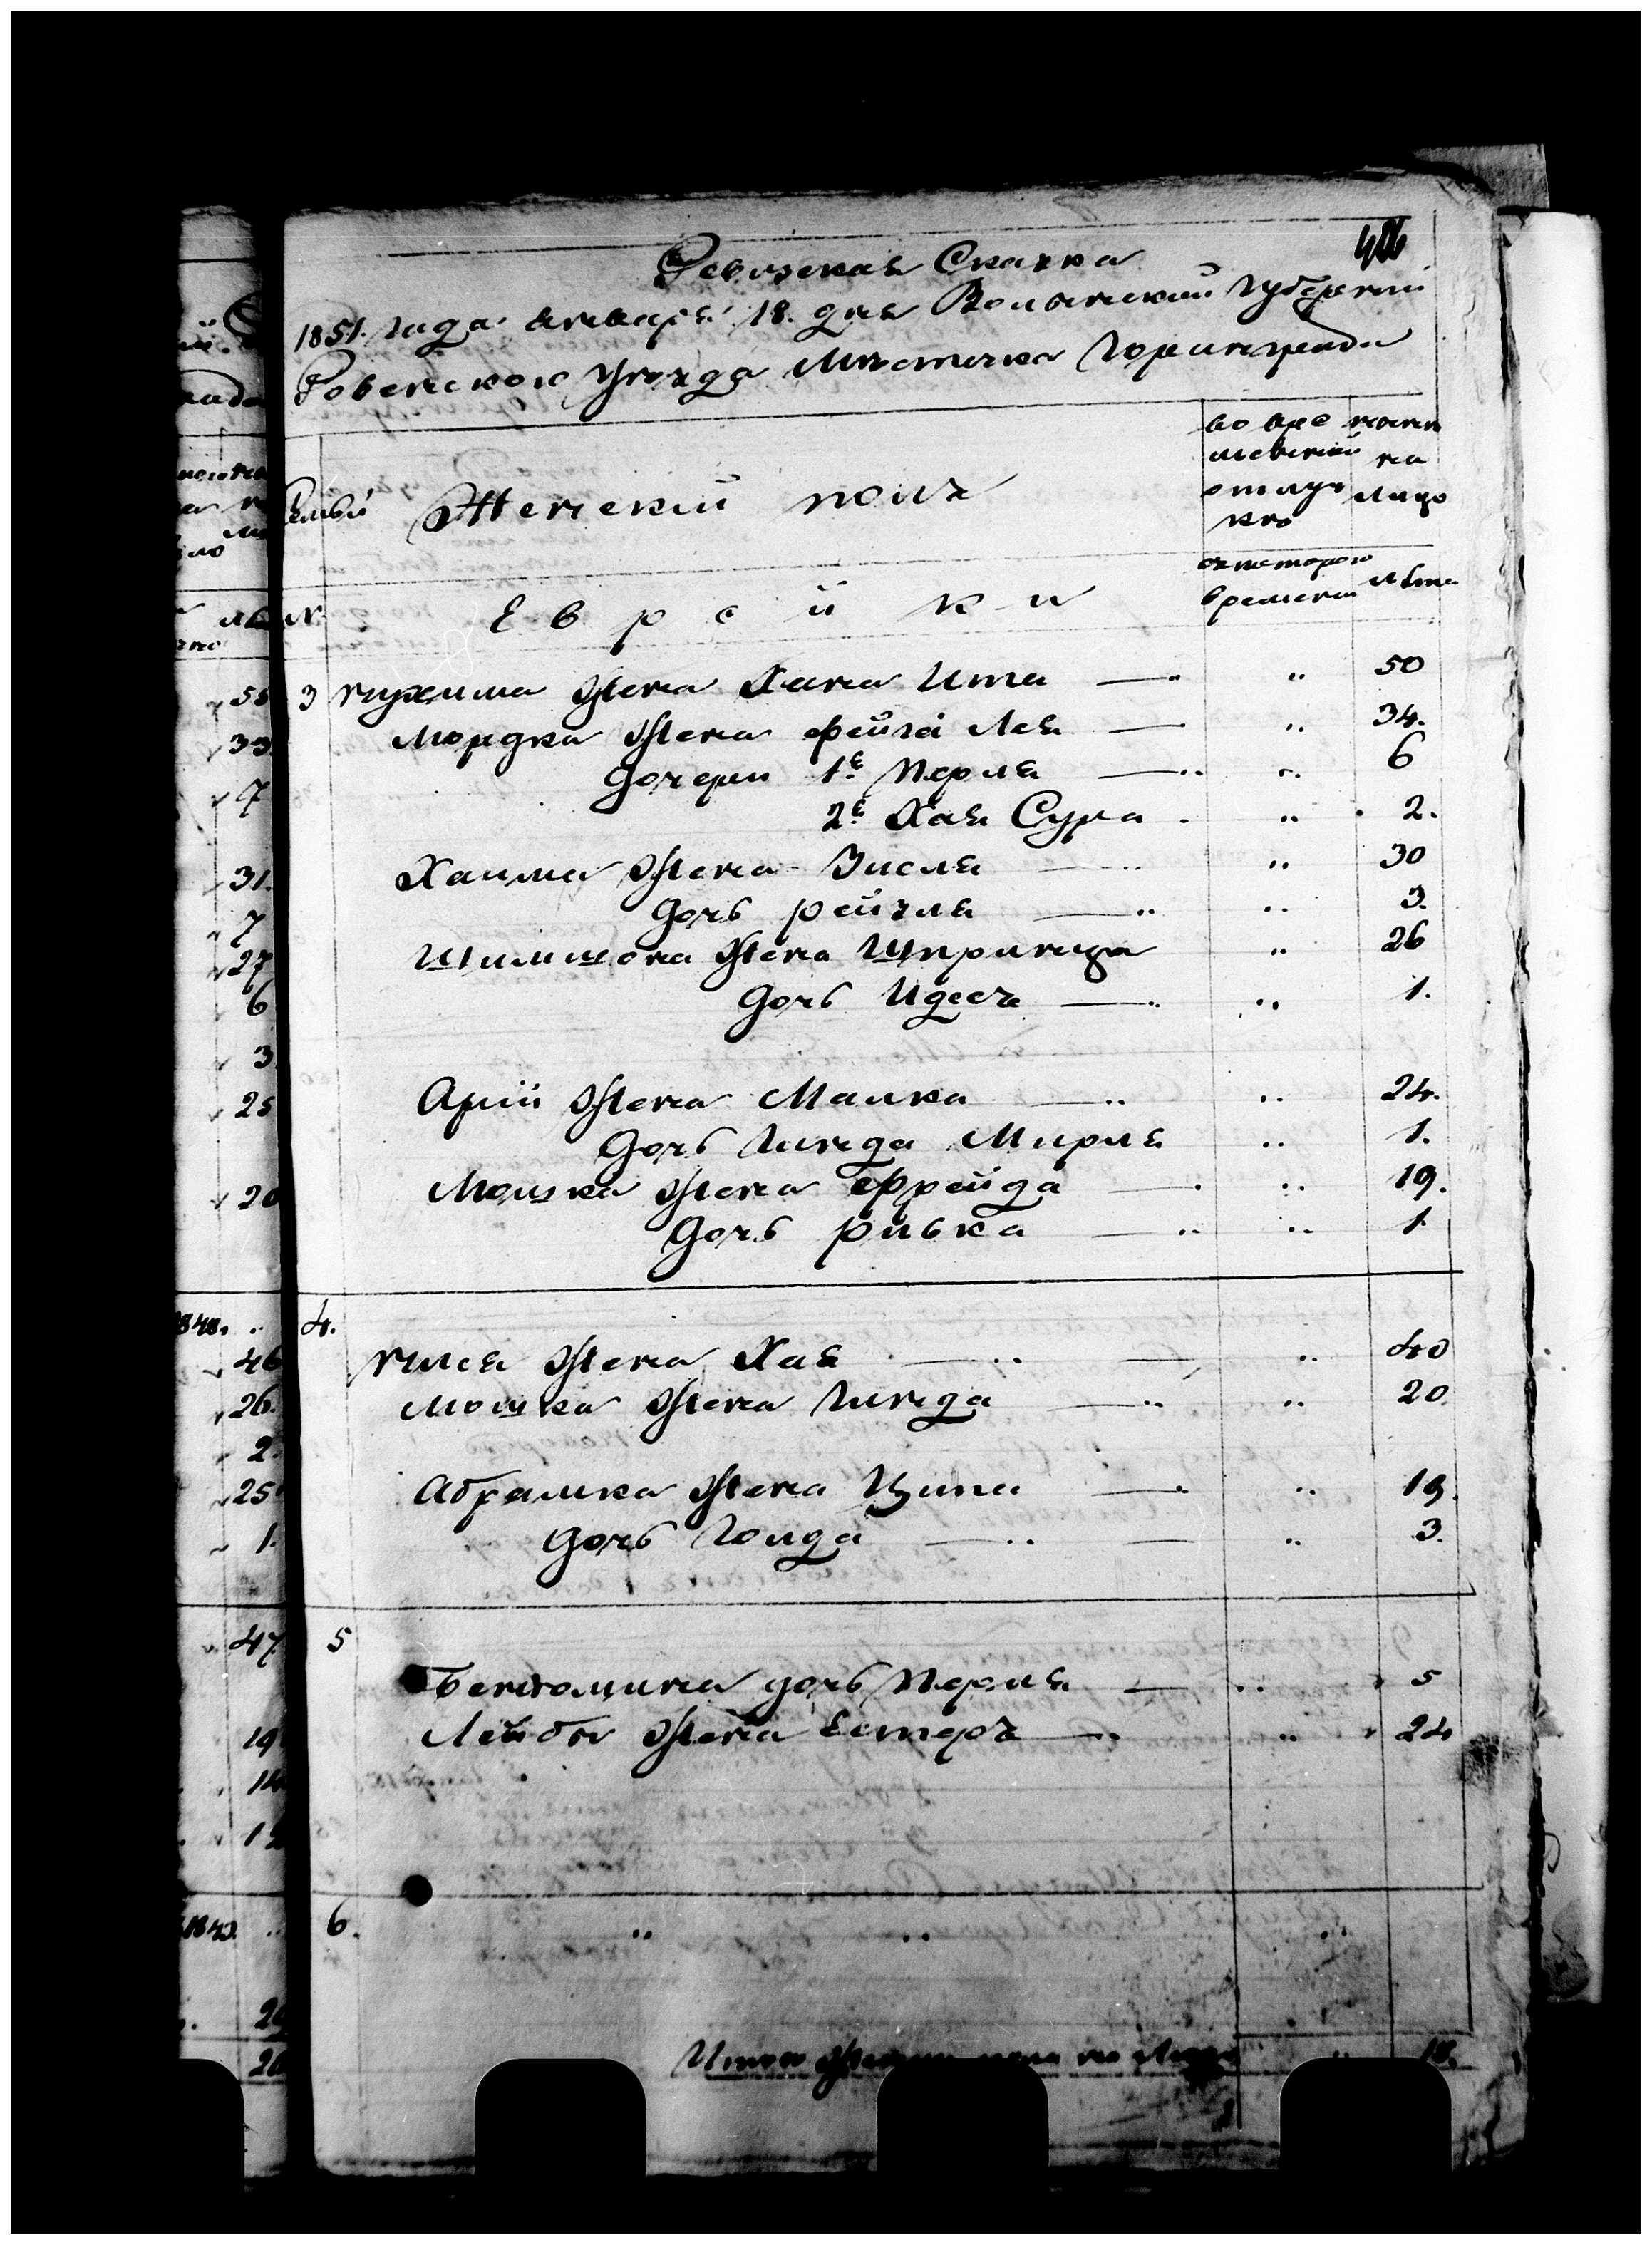 406
Ревизская Сказка
1851. года Января 18. дня Волынский Губернии
Ровенского уезда Мѣстечка Горинграда
Семьи
Женский полъ
во вре
менной
отлуч
кѣ
налич
на
лицо
№
Еврейки
съ котораго
времени
лѣта
3 Нухима жена Хана Ита — " 50
Мордка жена Фейга Лея — " 34.
дочери 1я Перля — " 6
2я Хая Сура - " 2.
Хаима жена Зисля — " 30
дочь Рейзля — " 3.
Шимшона жена Шпринца " 26
дочь Идесъ — " 1.
Арiи жена Малка — " 24.
дочь Гинда Мирля " 1.
Мошка жена Фрейда — " 19.
дочь Ривка — " 1
4.
жена Хая — — " 40
Мошка жена Гинда — " 20.
Абрамка жена Ципа — " 19.
дочь Голда — — " 3.
5
Беніомина дочь Перля — " 5
Лейбы жена Естеръ — " 24
6. " " "
Итого на лицо " 18.
55
33
7
31.
7
27
6
3
25
20
1848.
46
26.
2.
25
1.
47
19
12
1843.